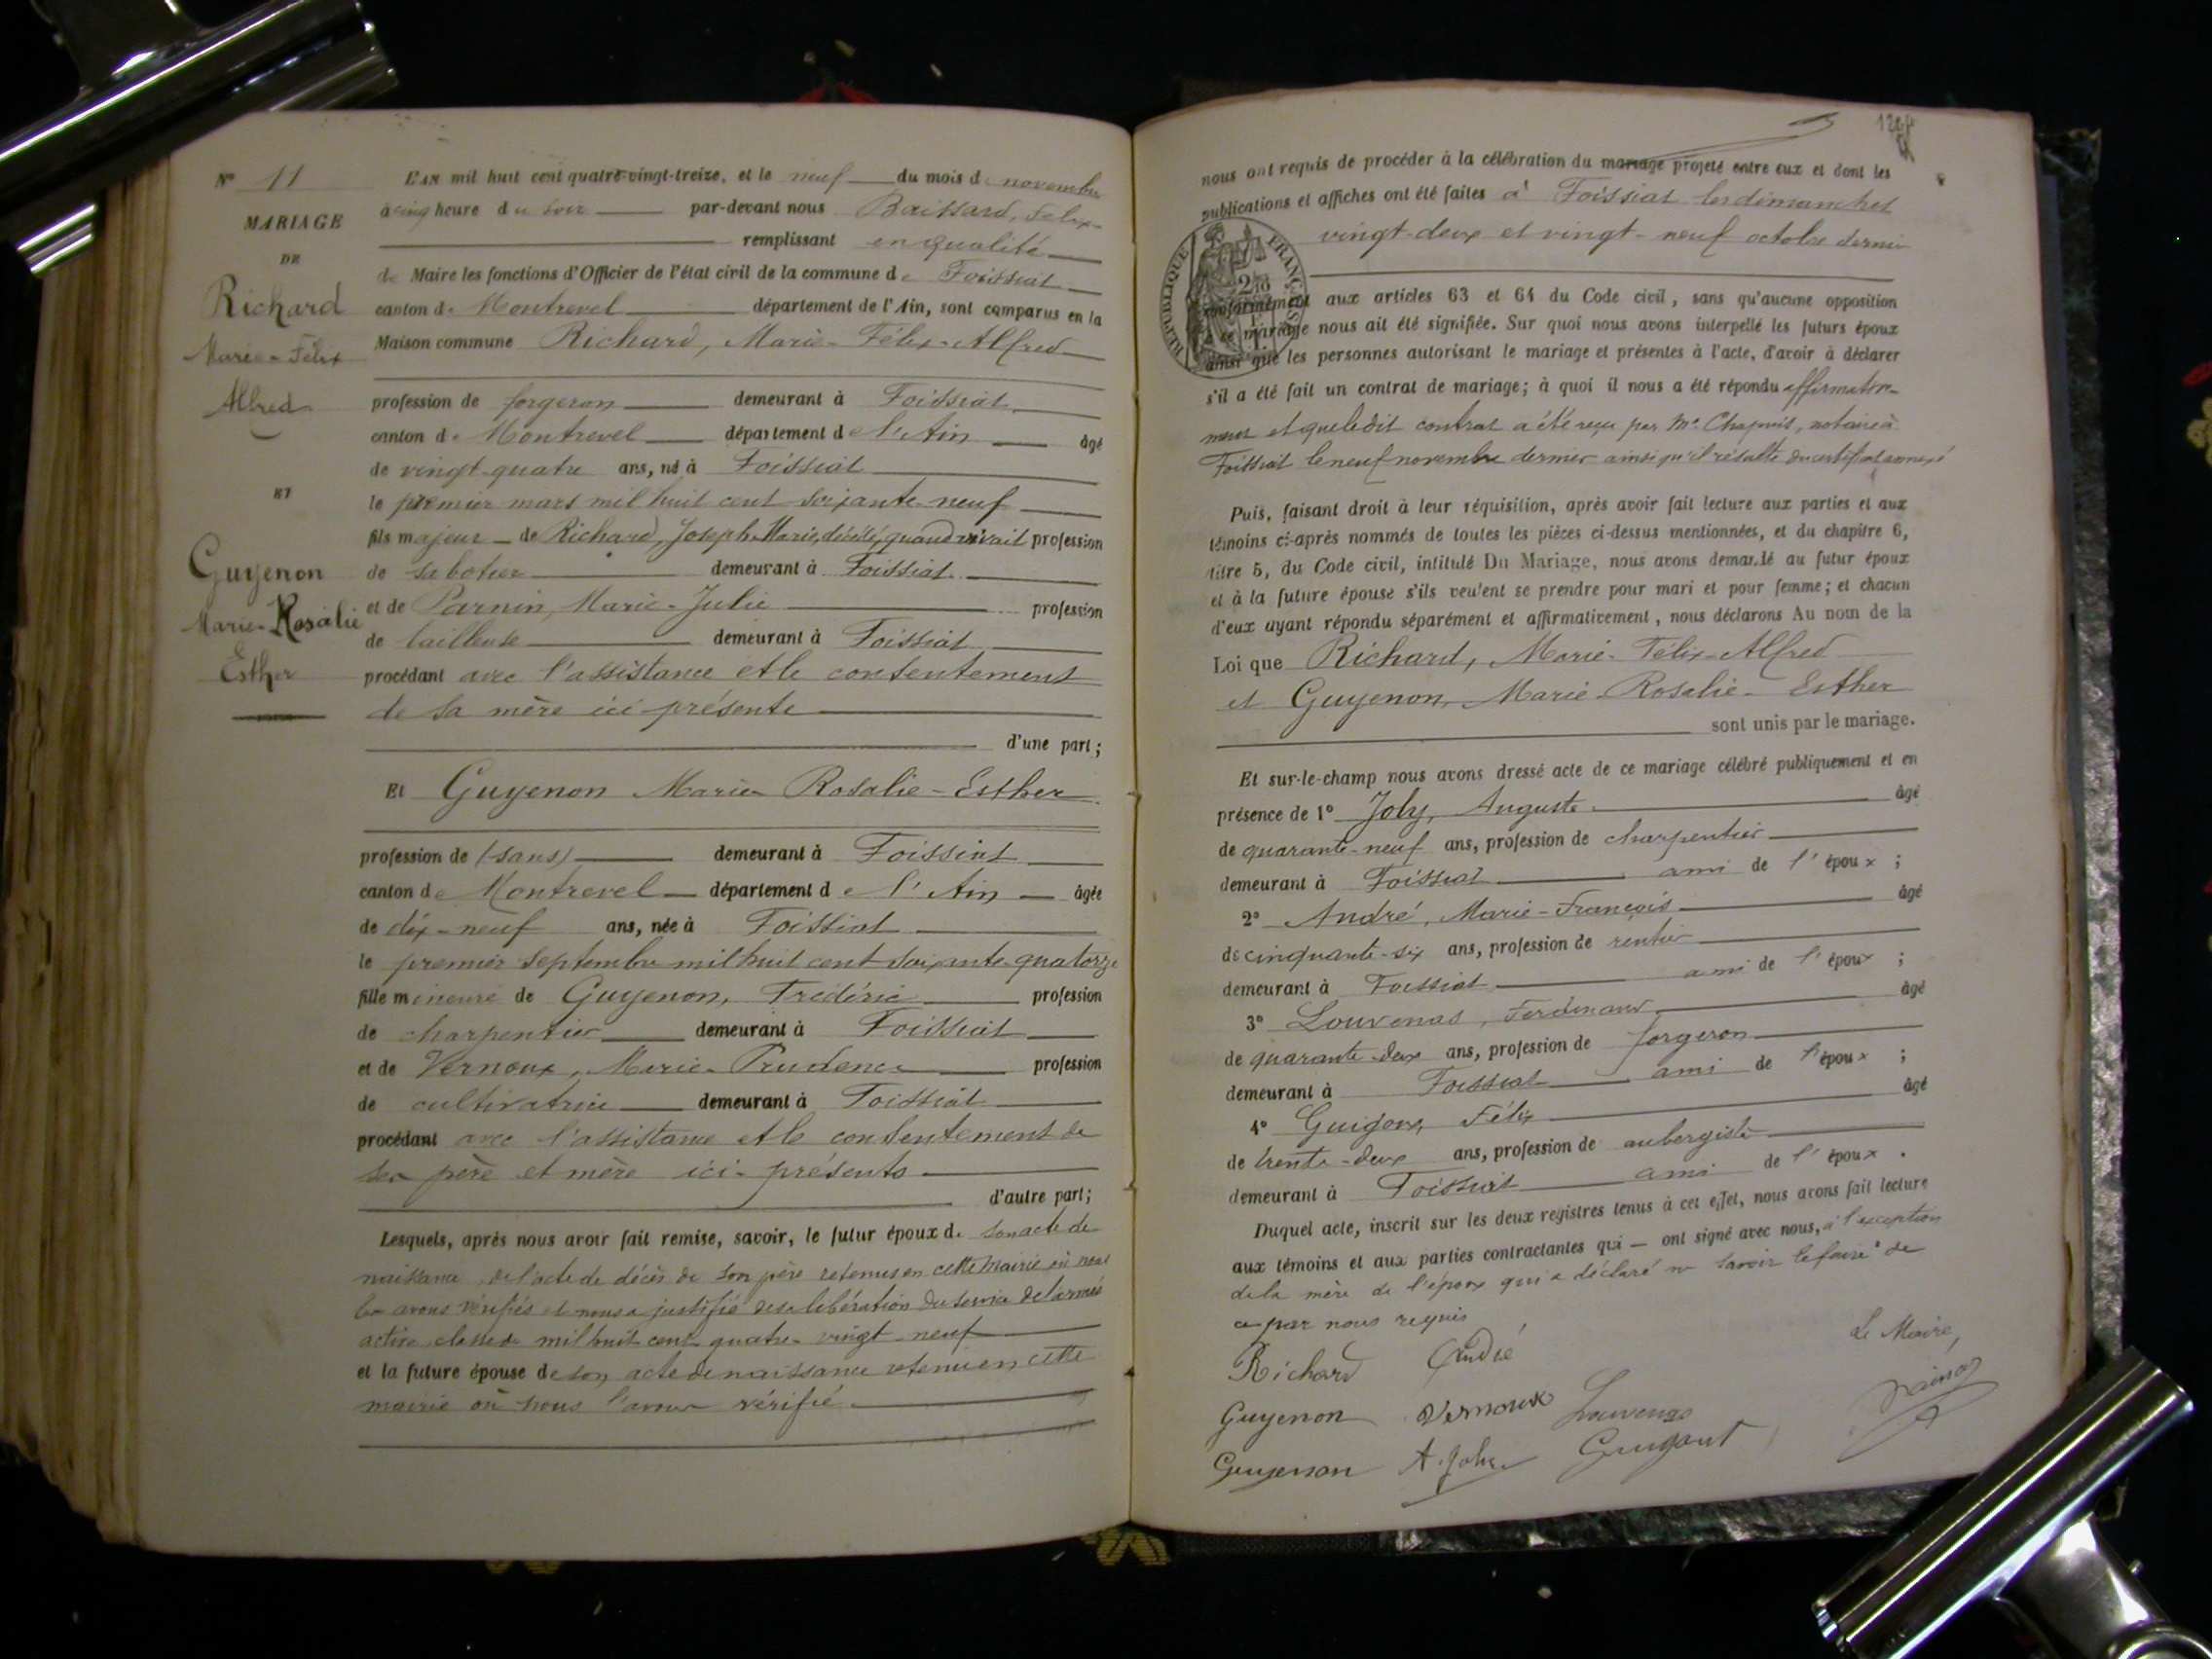 N° 11
MARIAGE
DE
Richard
Marie-Félix
Alfred
ET
Guyenon
Marie-Rosalie
Esther
L'AN mil huit cent quatre-vingt-treize, et le neuf du mois de novembre
à cinq heure du soir par-devant nous Baissard, Félix
remplissant en qualité
de Maire les fonctions d'Officier de l'état civil de la commune de Foissiat
canton de Montrevel département de l'Ain, sont comparus en la
Maison commune Richard, Marie-Félix-Alfred
profession de forgeron demeurant à Foissiat
canton de Montrevel département de l'Ain âgé
de vingt-quatre ans, né à Foissiat
le premier mars mil huit cent soixante-neuf
fils majeur de Richard, Joseph-Marie, décédé, quand vivait profession
de sabotier demeurant à Foissiat
et de Parnin, Marie-Julie profession
de tailleuse demeurant à Foissiat
procédant avec l'assistance et le consentement
de sa mère ici présente
d'une part;
Et Guyenon Marie-Rosalie-Esther
profession de (sans) demeurant à Foissiat
canton de Montrevel département de l'Ain âgée
de dix-neuf ans, née à Foissiat
le premier septembre mil huit cent soixante-quatorze
fille mineure de Guyenon, Frédéric profession
de charpentier demeurant à Foissiat
et de Vernoux, Marie-Prudence profession
de cultivatrice demeurant à Foissiat
procédant avec l'assistance et le consentement de
ses père et mère ici-présents
d'autre part;
Lesquels, après nous avoir fait remise, savoir, le futur époux de son acte de
naissance, de l'acte de décès de son père retenus en cette mairie où nous
les avons vérifiés et nous a justifié de sa libération du service de l'armée
active classe de mil huit cent quatre-vingt-neuf
et la future épouse de son acte de naissance retenu en cette
mairie où nous l'avons vérifié
nous ont requis de procéder à la célébration du mariage projeté entre eux et dont les
publications et affiches ont été faites à Foissiat les dimanches
vingt-deux et vingt-neuf octobre dernier
RÉPUBLIQUE FRANÇAISE
conformément aux articles 63 et 64 du Code civil, sans qu'aucune opposition
à ce mariage nous ait été signifiée. Sur quoi nous avons interpellé les futurs époux
ainsi que les personnes autorisant le mariage et présentes à l'acte, d'avoir à déclarer
s'il a été fait un contrat de mariage; à quoi il nous a été répondu affirmative-
ment et que ledit contrat a été reçu par Me Chapuis, notaire à
Foissiat le neuf novembre dernier ainsi qu'il résulte du certificat annexé
Puis, faisant droit à leur réquisition, après avoir fait lecture aux parties et aux
témoins ci-après nommés de toutes les pièces ci-dessus mentionnées, et du chapitre 6,
titre 5, du Code civil, intitulé Du Mariage, nous avons demandé au futur époux
et à la future épouse s'ils veulent se prendre pour mari et pour femme; et chacun
d'eux ayant répondu séparément et affirmativement, nous déclarons Au nom de la
Loi que Richard, Marie-Félix-Alfred
et Guyenon, Marie-Rosalie-Esther
sont unis par le mariage.
Et sur-le-champ nous avons dressé acte de ce mariage célébré publiquement et en
présence de 1° Joly, Auguste âgé
de quarante-neuf ans, profession de charpentier
demeurant à Foissiat ami de l'époux;
2° André, Marie-François âgé
de cinquante-six ans, profession de rentier
demeurant à Foissiat ami de l'époux;
3° Louvenas, Ferdinand âgé
de quarante-deux ans, profession de forgeron
demeurant à Foissiat ami de l'époux;
4° Félix âgé
de trente-deux ans, profession de aubergiste
demeurant à Foissiat ami de l'époux.
Duquel acte, inscrit sur les deux registres tenus à cet effet, nous avons fait lecture
aux témoins et aux parties contractantes qui — ont signé avec nous, à l'exception
de la mère de l'époux qui a déclaré ne savoir le faire de
ce par nous requis
Richard André Le Maire,
Guyenon Vernoux
Guyenon A. Joly